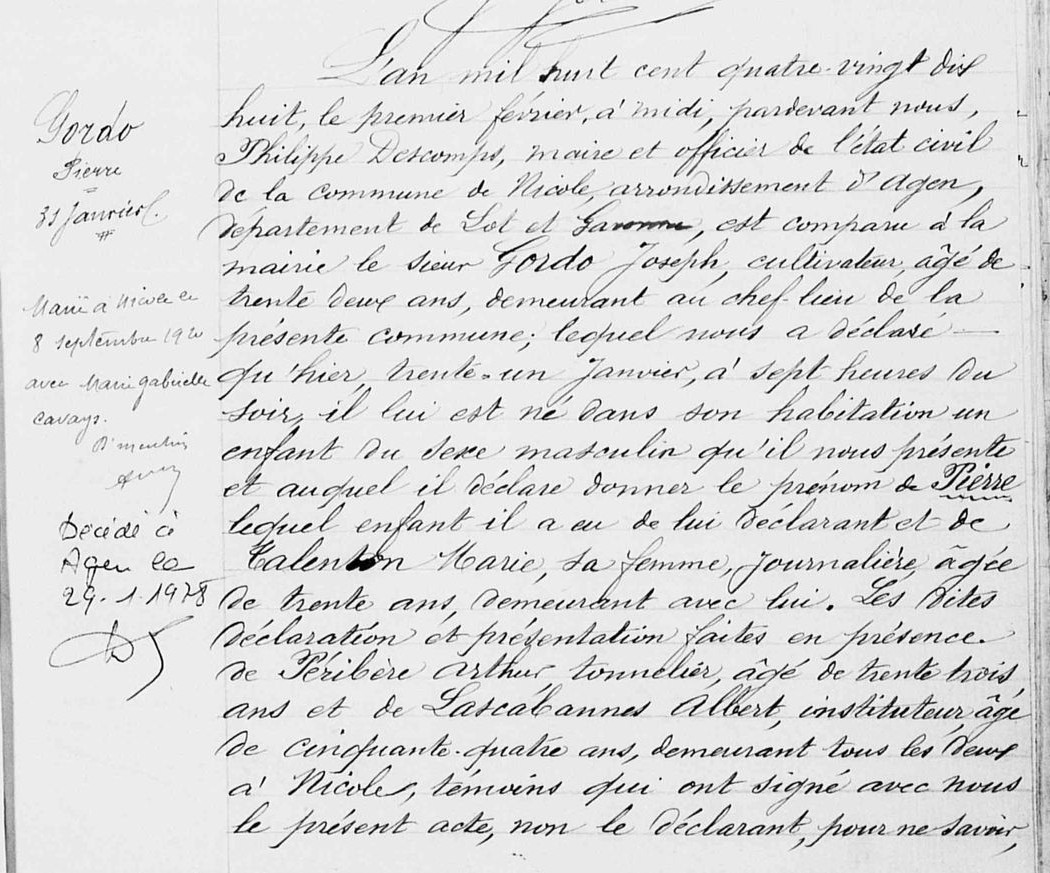 Gordo
Pierre
31 Janvier.
Marié à Nicole le
8 septembre 1920
avec Marie gabrielle
cavays.
Dt mention
Décédé à
Agen le
29.1.1978
L'an mil huit cent quatre-vingt dix
huit, le premier février, à midi, pardevant nous,
Philippe Descomps, maire et officier de l'état civil
de la commune de Nicole, arrondissement d'Agen,
département de Lot et Garonne, est comparu à la
mairie le sieur Gordo Joseph, cultivateur, âgé de
trente deux ans, demeurant au chef-lieu de la
présente commune; lequel nous a déclaré —
qu'hier, trente-un Janvier, à sept heures du
soir, il lui est né dans son habitation un
enfant du sexe masculin qu'il nous présente
et auquel il déclare donner le prénom de Pierre
lequel enfant il a eu de lui déclarant et de
Talenton Marie, sa femme, journalière, âgée
de trente ans, demeurant avec lui. Les dites
déclaration et présentation faites en présence
de Péribère Arthur tonnelier, âgé de trente trois
ans et de Lascabannes Albert, instituteur, âgé
de cinquante-quatre ans, demeurant tous les deux
à Nicole, témoins qui ont signé avec nous
le présent acte, non le déclarant, pour ne savoir,